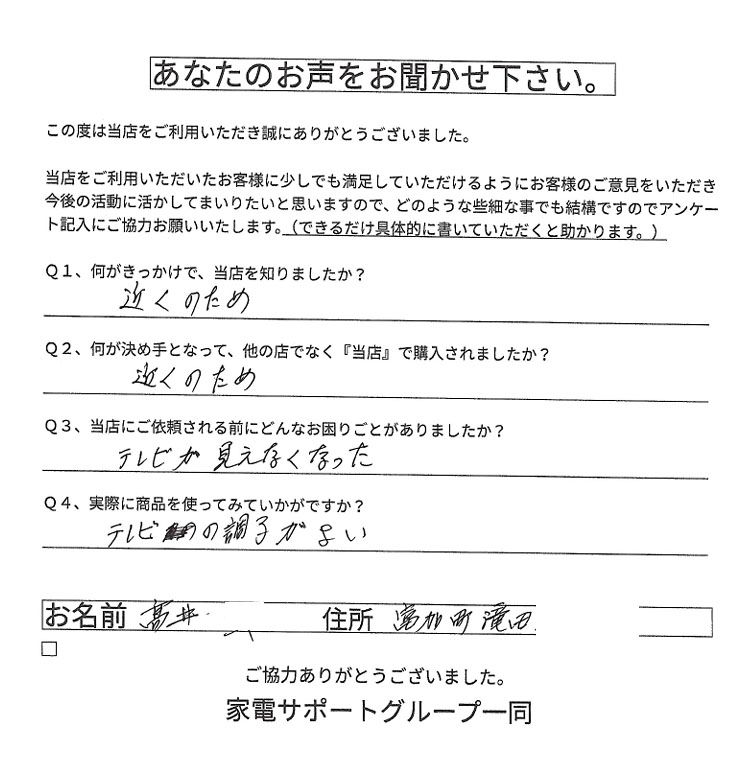 あなたのお声をお聞かせ下さい。
この度は当店をご利用いただき誠にありがとうございました。
当店をご利用いただいたお客様に少しでも満足していただけるようにお客様のご意見をいただき
今後の活動に活かしてまいりたいと思いますので、どのような些細な事でも結構ですのでアンケー
ト記入にご協力お願いいたします。（できるだけ具体的に書いていただくと助かります。）
Ｑ１、何がきっかけで、当店を知りましたか？
近くのため
Ｑ２、何が決め手となって、他の店でなく『当店』で購入されましたか？
近くのため
Ｑ３、当店にご依頼される前にどんなお困りごとがありましたか？
テレビが見えなくなった
Ｑ４、実際に商品を使ってみていかがですか？
テレビの調子がよい
お名前 髙井 住所 富加町滝田
ご協力ありがとうございました。
家電サポートグループ一同